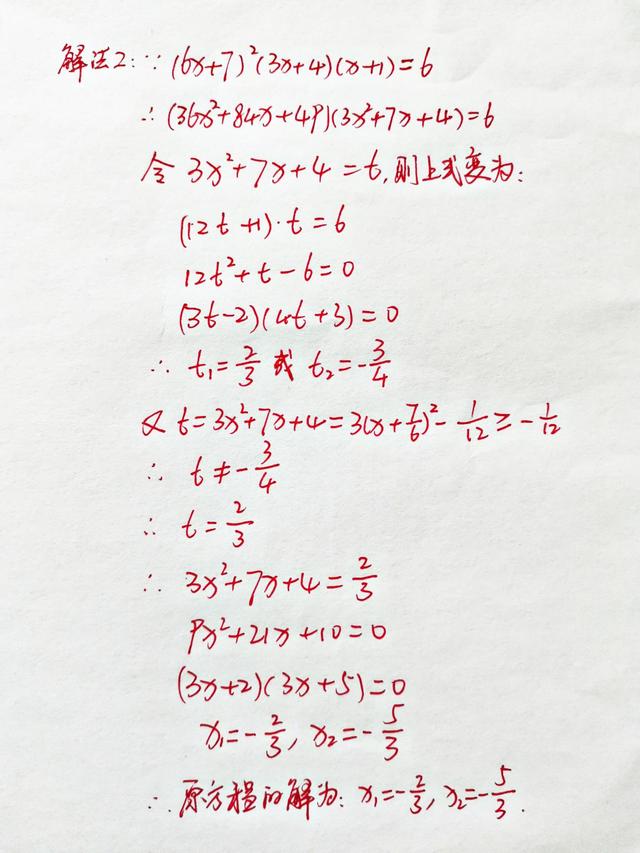 解法2:∵ (6x+7)²(3x+4)(x+1)=6
∴ (36x²+84x+49)(3x²+7x+4)=6
令 3x²+7x+4=t,则上式变为:
(12t+1)·t=6
12t²+t-6=0
(3t-2)(4t+3)=0
∴ t₁=2/3 或 t₂=-3/4
又 t=3x²+7x+4=3(x+7/6)²-1/12≥-1/12
∴ t≠-3/4
∴ t=2/3
∴ 3x²+7x+4=2/3
9x²+21x+10=0
(3x+2)(3x+5)=0
x₁=-2/3, x₂=-5/3
∴ 原方程的解为: x₁=-2/3, x₂=-5/3.